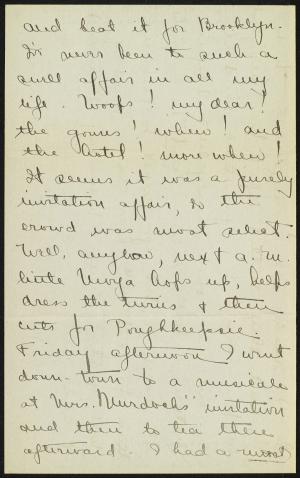 and beat it for Brooklyn.
I've never been to such a
swell affair in all my
life. Woofs! my dear!
the gowns! whew! and
the hotel! more whew!
It seems it was a purely
invitation affair, so the
crowd was most select.
Well, anyhow, next a.m.
little hops up, helps
dress the twins & then
cuts for Poughkeepsie.
Friday afternoon I went
down-town to a musicale
at Mrs. Murdoch's invitation
and then to tea there
afterward. I had a most